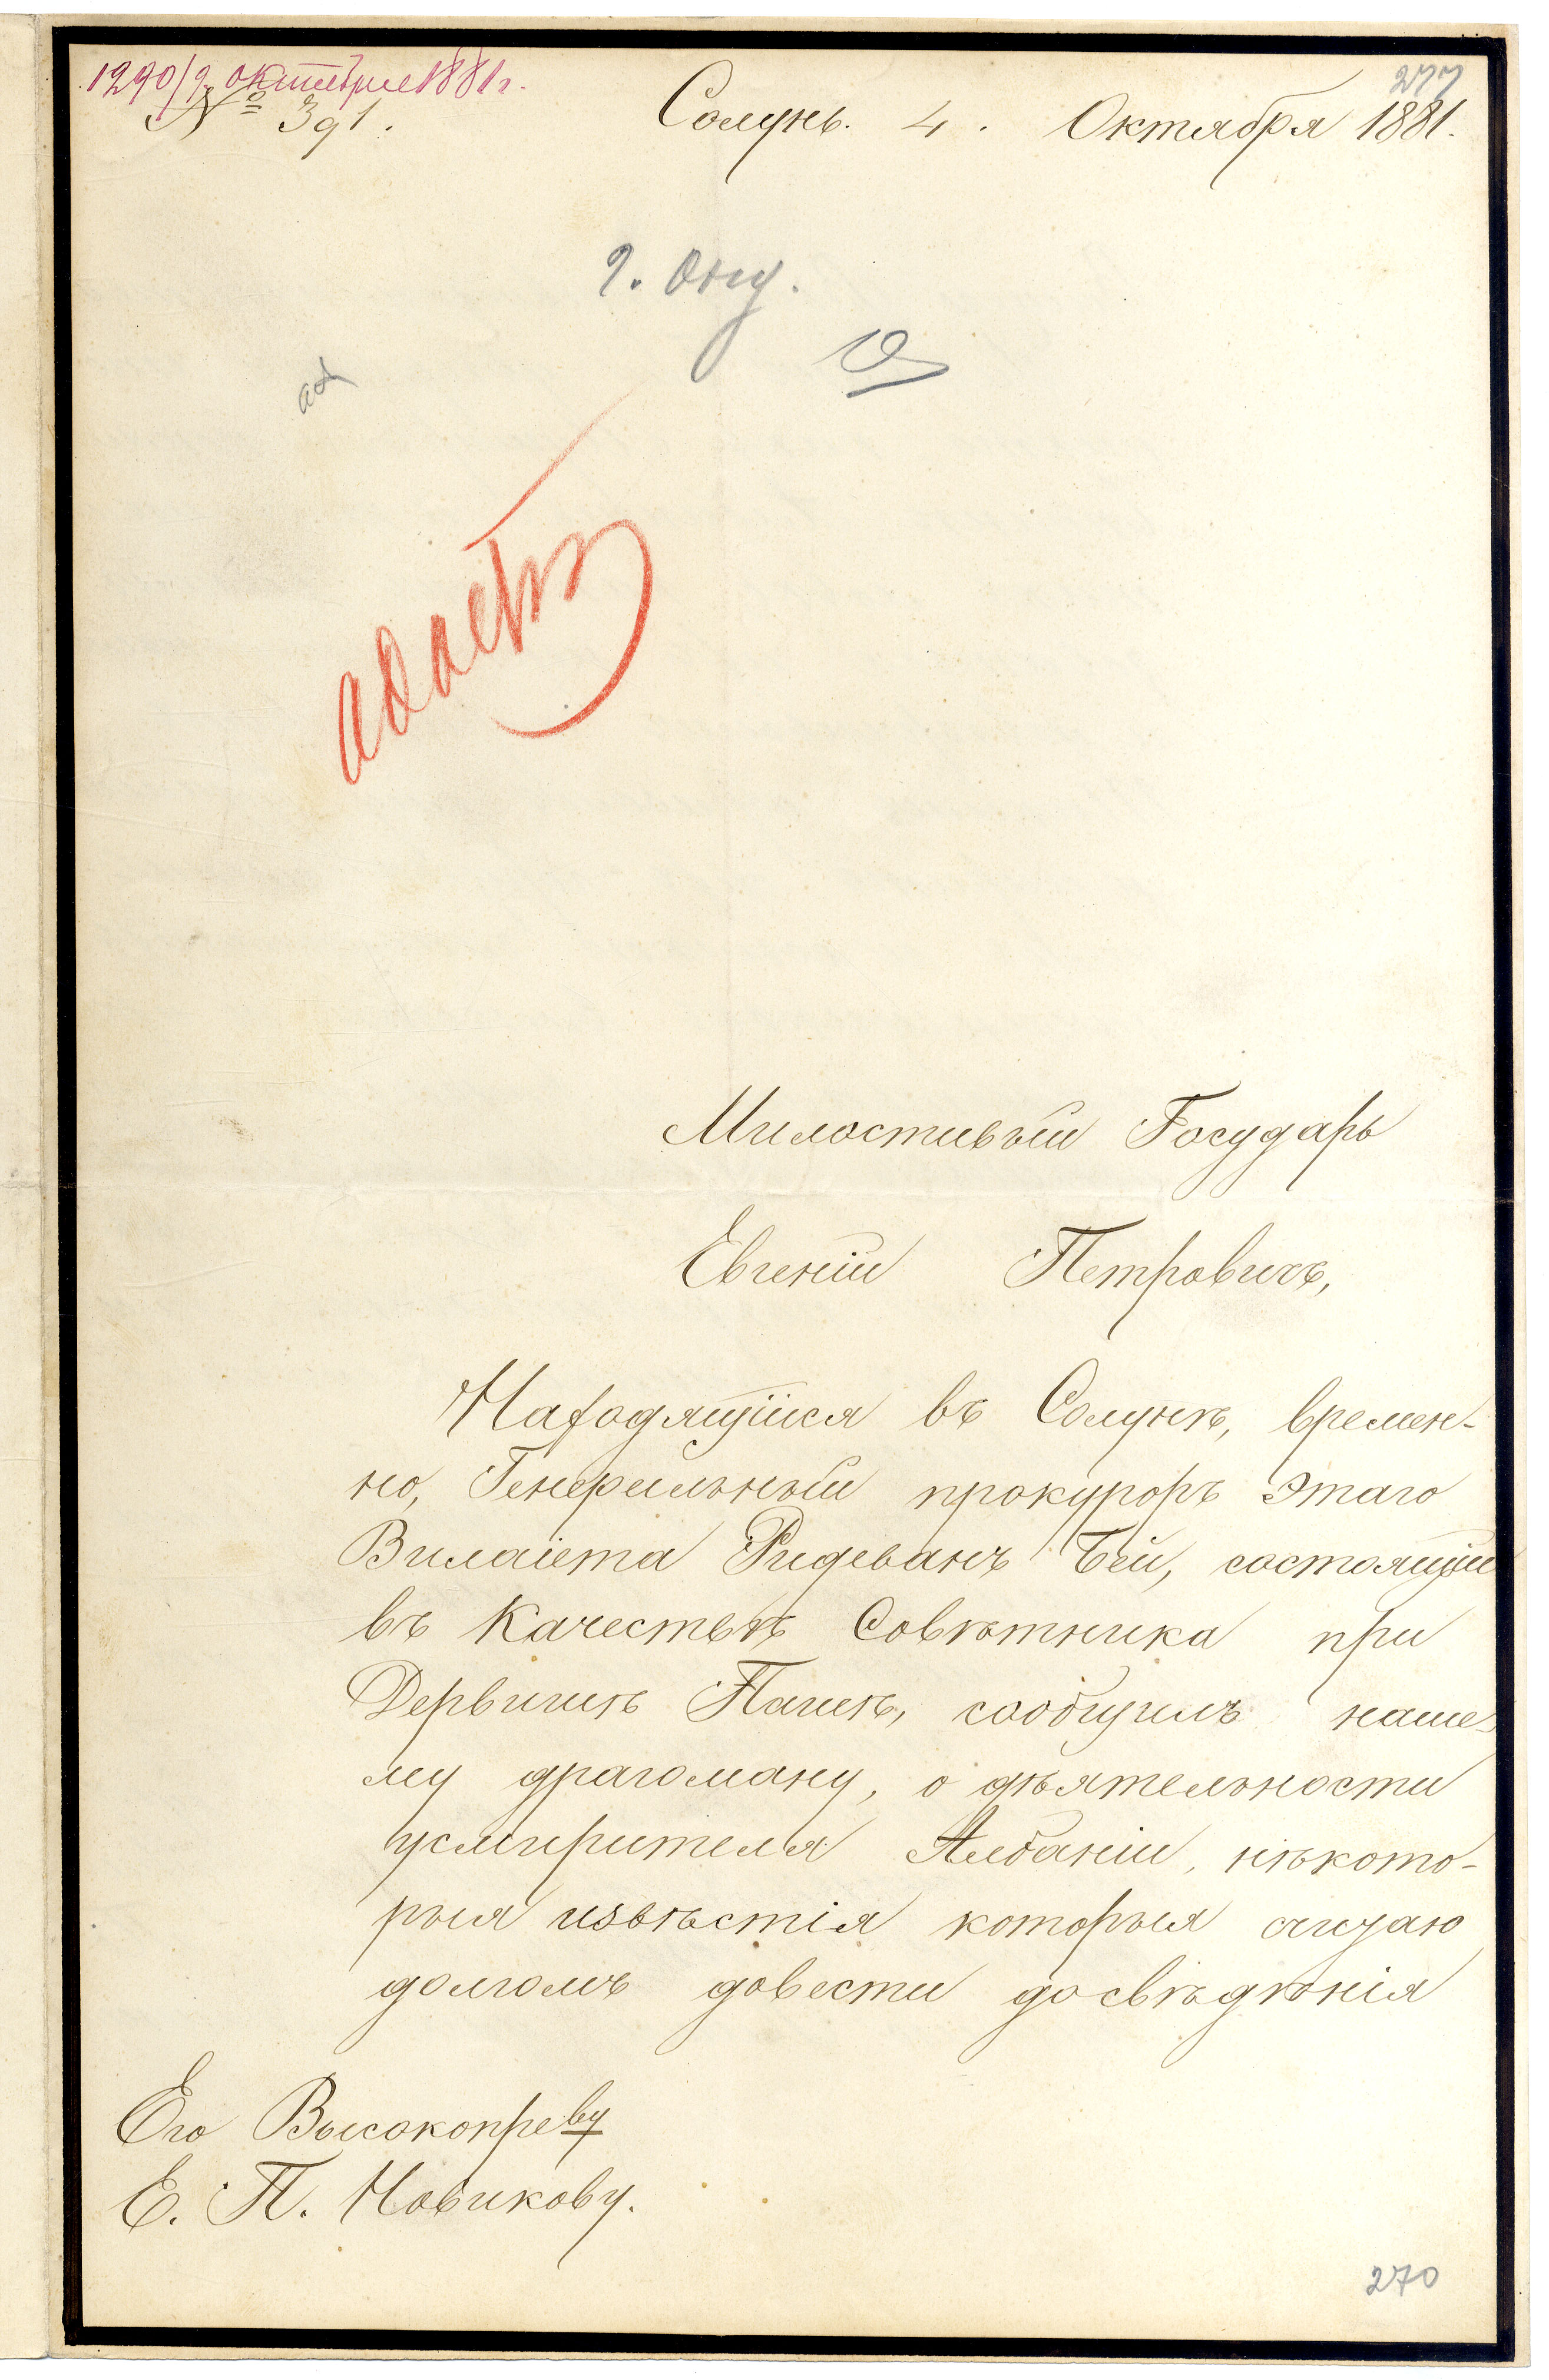 1290/9 октября 1881 г.
277
№ 391.
Солунь. 4. Октября 1881.
Милостивый Государь
Евгеній Петровичъ,
Находящійся въ Солунѣ, времен-
но, Генеральный прокуроръ этаго
Вилаіета Ридеванъ Бей, состоящій
въ качествѣ Совѣтника при
Дервишѣ Пашѣ, сообщилъ наше-
му драгоману, о дѣятельности
усмирителя Албаніи, нѣкото-
рыя извѣстія которыя считаю
долгомъ довести до свѣдѣнія
Его Высокопреву
Е. П. Новикову.
270